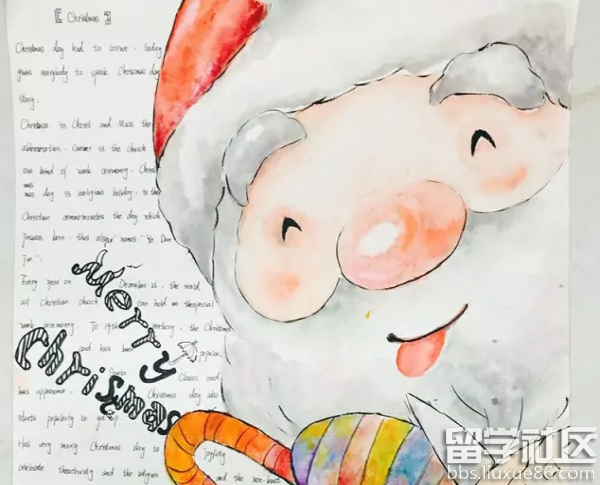 【 Christmas 】
Christmas day had to arrive, today
gives everybody to speak Christmas day
story.
Christmas is Christ and Mass the
abbreviation. is the church
one kind of week ceremony. Christ
mas
mas day is a religious holiday. is the
Christian commemorates the day which
Jesuses born, thus "names" "
".
Every year on December 25, the world
all Christian church can hold
week ceremony. To 19th century, the Christmas
and has popular,
Clauses card
has appearance. Christmas day also
starts popularity to
Has very many Christmas day to joyfully
celebrate the and the religion and the non-
Merry
Christmas
留学社区
bbs.liuxue86.com